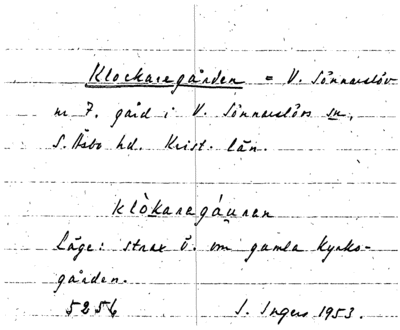 Klockaregården = V. Sönnarslöv
nr 7. gård i V. Sönnarslövs sn,
S. Åsbo hd. Krist. län.
klòkaregáuran
Läge: strax ö. om gamla kyrko-
gården.
5256 S. Ingers 1953.